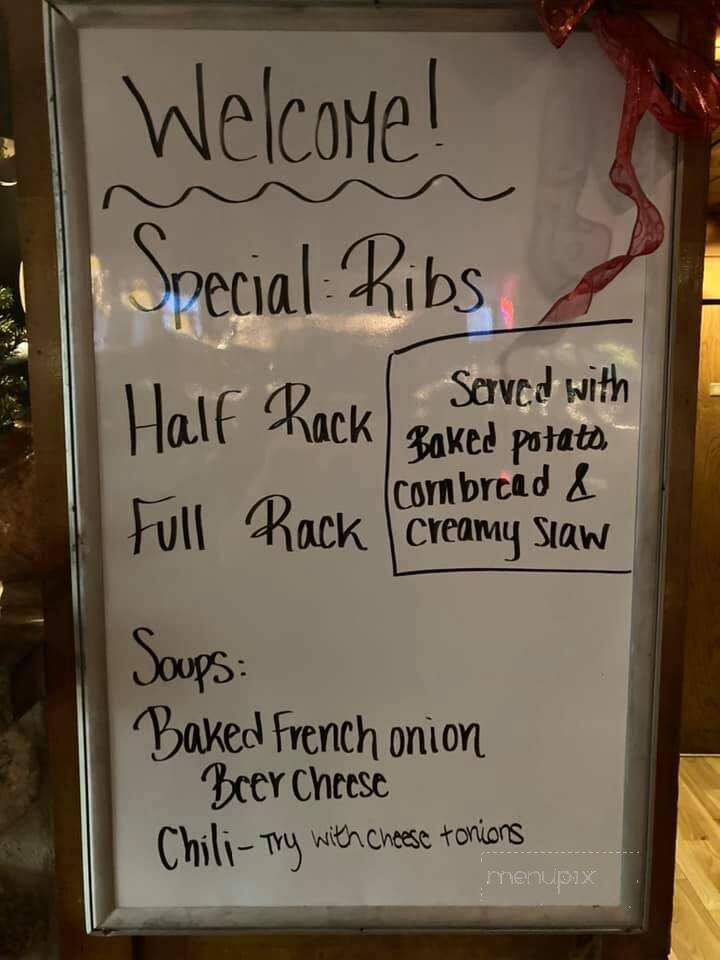 Welcome!
Special: Ribs
Half Rack
Full Rack
Served with
Baked potato,
cornbread &
creamy slaw
Soups:
Baked French onion
Beer Cheese
Chili - Try with cheese + onions
menupix